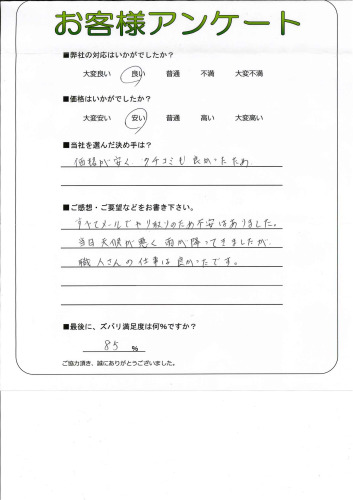 お客様アンケート
■弊社の対応はいかがでしたか？
大変良い 良い 普通 不満 大変不満
■価格はいかがでしたか？
大変安い 安い 普通 高い 大変高い
■当社を選んだ決め手は？
価格が安く、クチコミも良かったため
■ご感想・ご要望などをお書き下さい。
すべてメールでやり取りのため不安はありました。
当日天候が悪く雨が降ってきましたが、
職人さんの仕事は良かったです。
■最後に、ズバリ満足度は何％ですか？
85 ％
ご協力頂き、誠にありがとうございました。